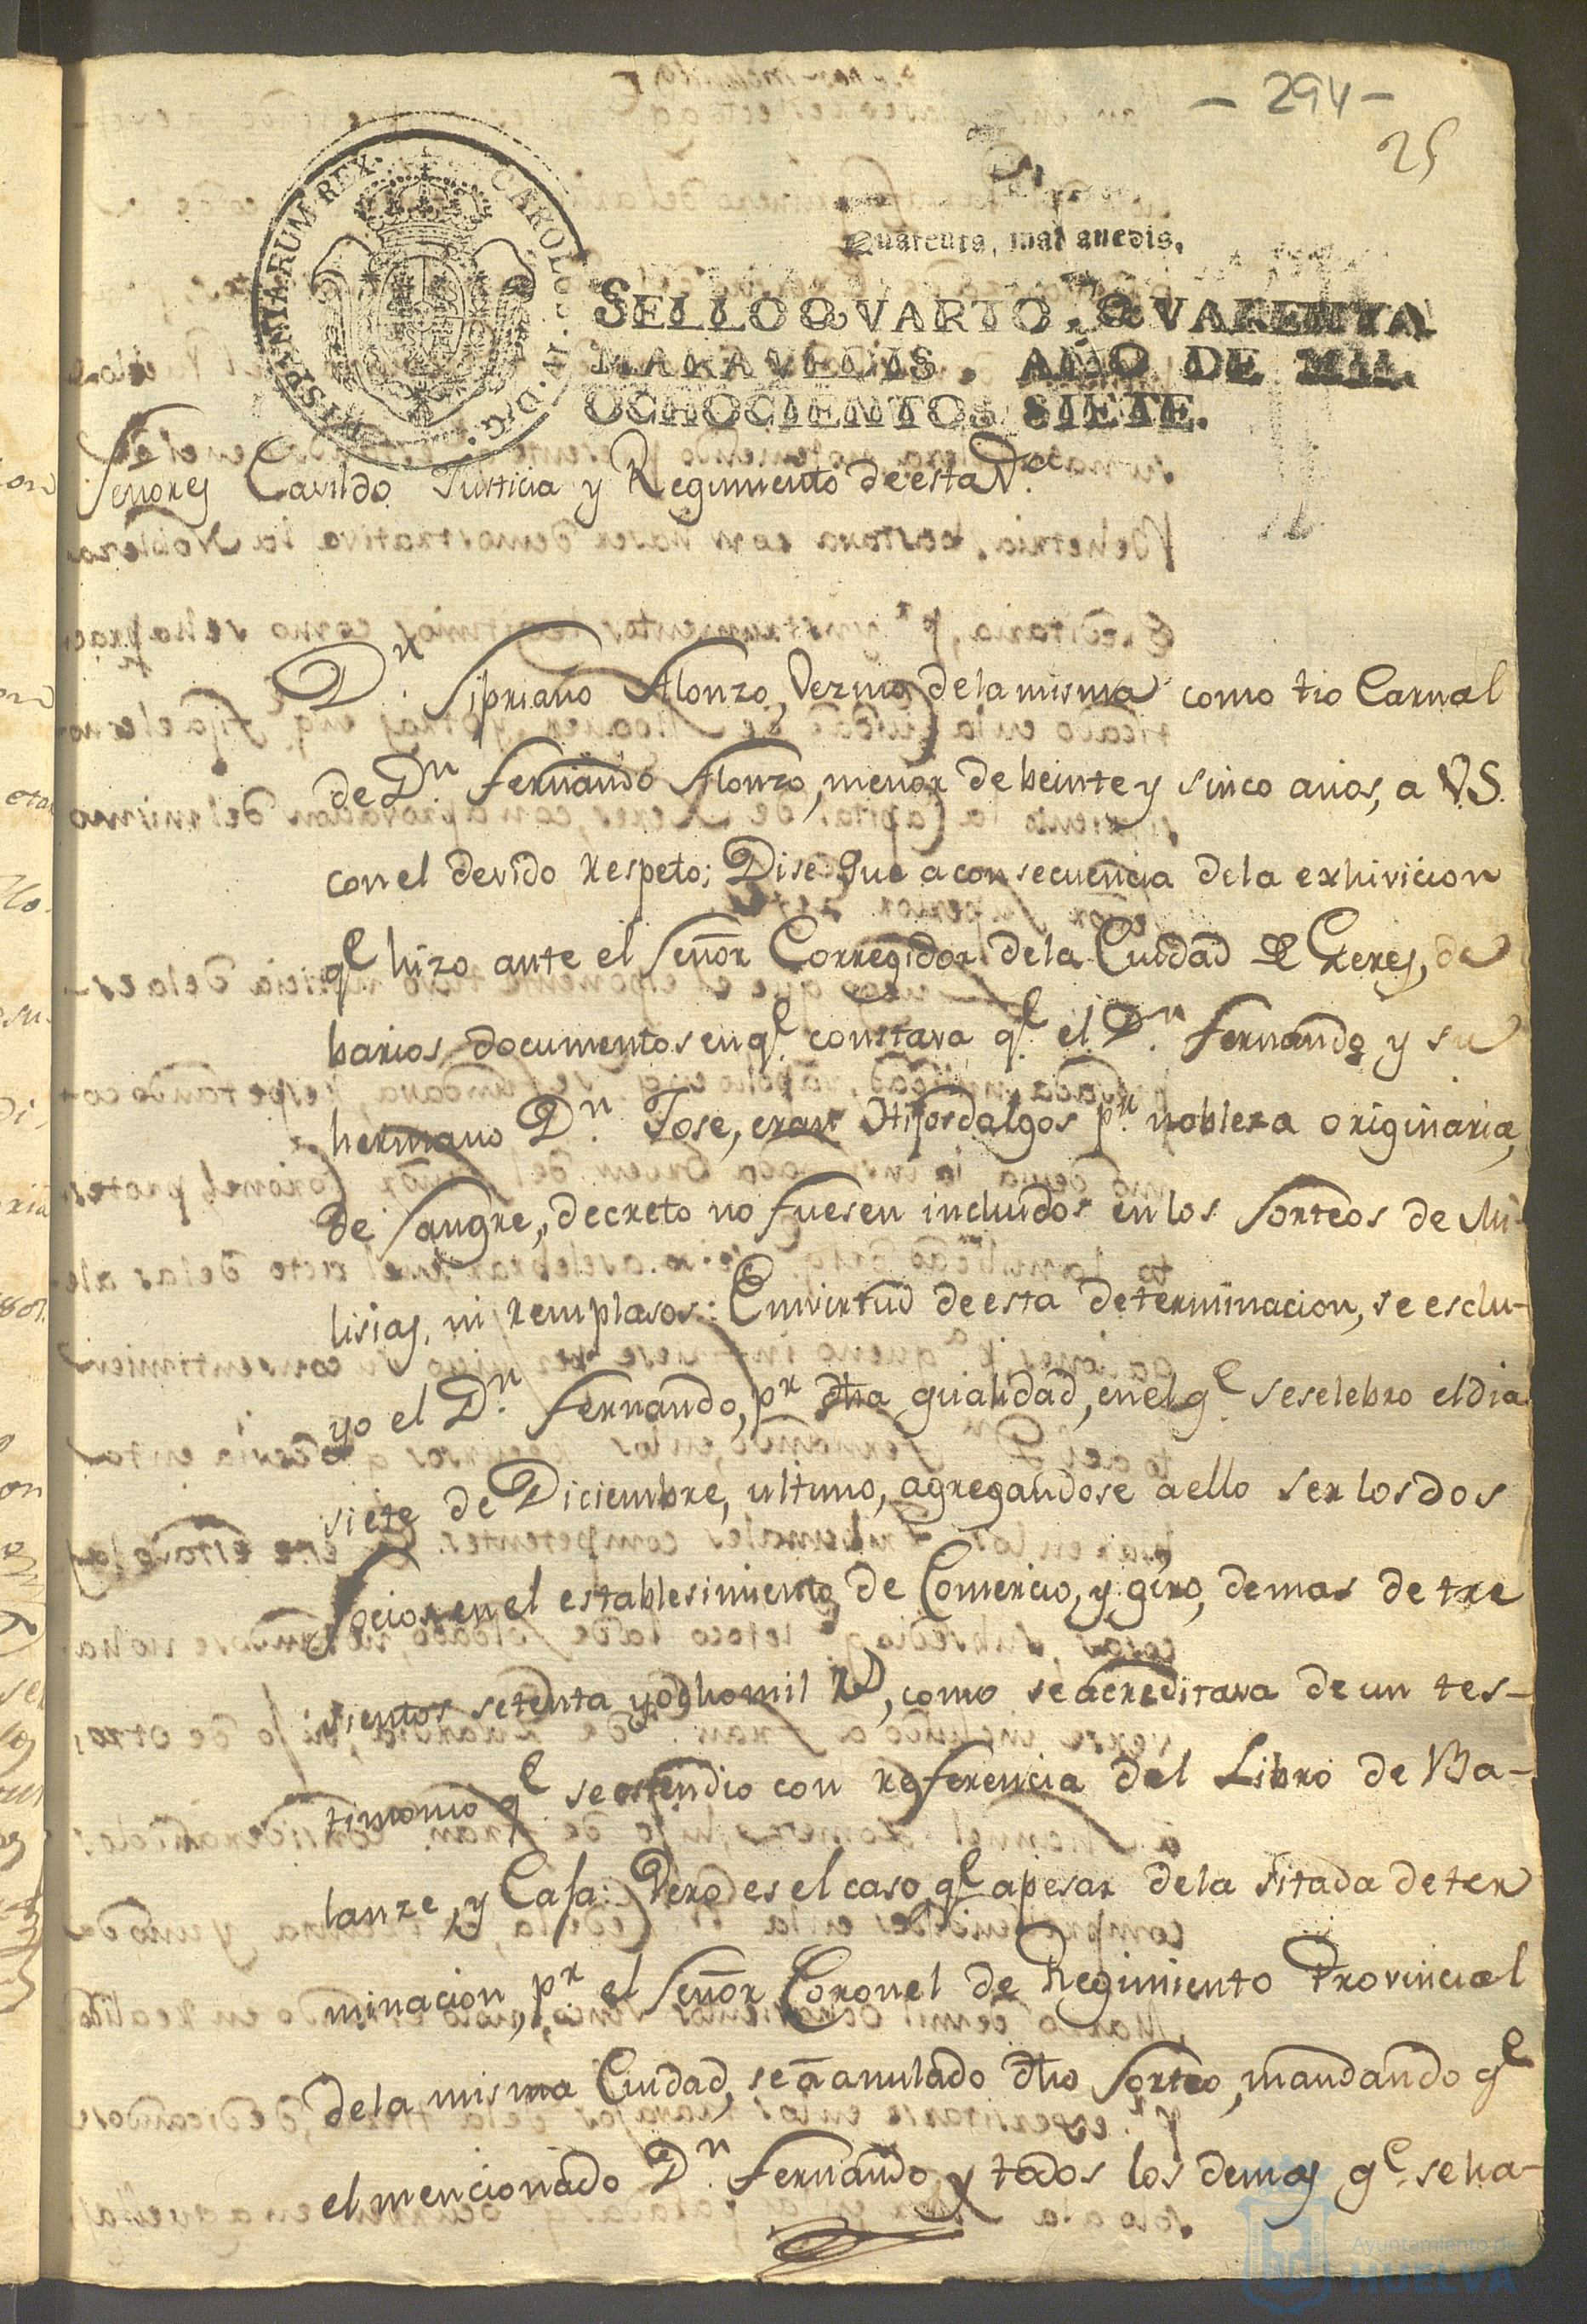 - 294 -
25
Quarenta maravedis.
HISPANIARUM REX. CAROLUS IV. D. G.
SELLO QVARTO, QVARENTA
MARAVEDIS, AÑO DE MIL
OCHOCIENTOS SIETE.
Señores Cavildo Justicia y Regimiento de esta V.
Dn. Sipriano Alonzo, Vezino de la misma como tio Carnal
de Dn Fernando Alonzo, menor de beinte y sinco años, a V.S.
con el devido respeto; Dise: Que a consecuencia de la exhivicion
qe hizo ante el Señor Corregidor de la Ciudad de Xerez, de
barios documentos en qe. constava qe. el Dn. Fernando y su
hermano Dn. Jose, eran Hijosdalgos pr. nobleza originaria,
de Sangre, decreto no fuesen incluidos en los Sorteos de Mi-
lisias, ni remplasos: En virtud de esta determinacion, se esclu-
yo el Dn. Fernando, pr dha qualidad, en el qe. se selebro el dia
siete de Diciembre, ultimo, agregandose a ello ser los dos
Socios en el establesimiento de Comercio, y giro, de mas de tre
sientos setenta y ocho mil Rs, como se acreditava de un tes-
timonio qe. se estendio con referencia del Libro de Ba-
lanze, y Casa: Pero es el caso qe apesar de la sitada deter
minacion, pr. el Señor Coronel de Regimiento Provincial
de la misma Ciudad, se á anulado dho Sorteo, mandando qe
el mencionado Dn. Fernando y todos los demas qe. se ha-
Ayuntamiento de
HUELVA